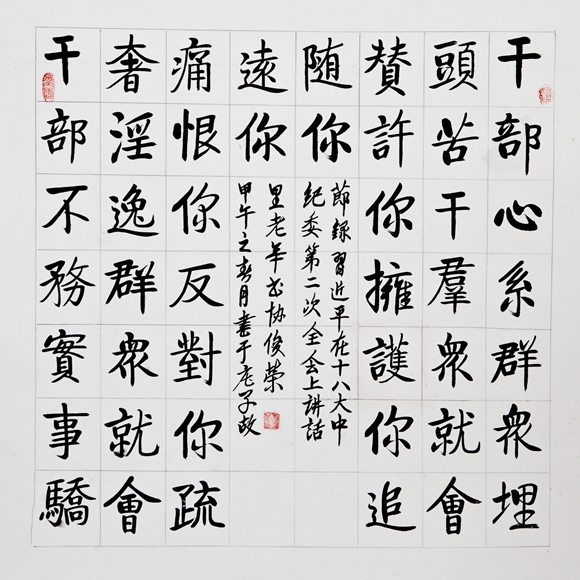 干部心系群衆埋
頭苦干羣衆就會
贊許你擁護你追
随你
節録習近平在十八大中
紀委第二次全会上讲話
干部不務實事驕
奢淫逸群衆就會
痛恨你反對你疏
遠你
甲午之春月書于老子故
里老年书协俊荣